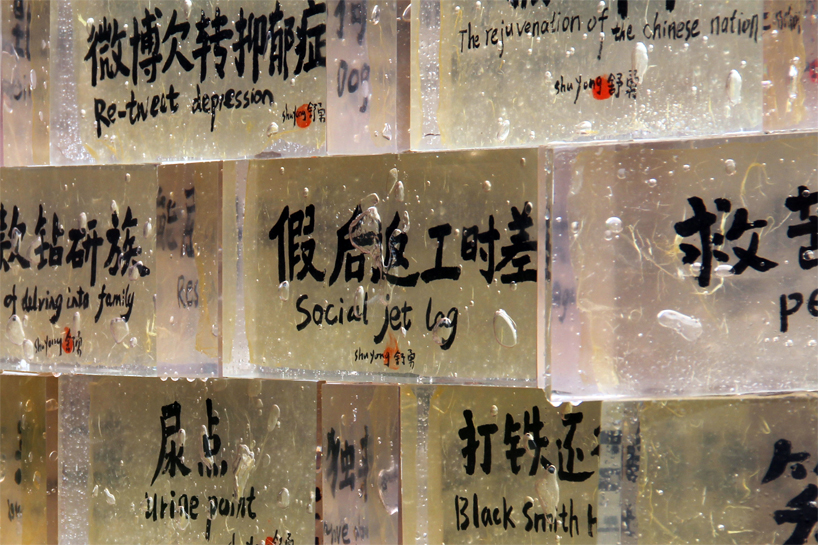 微博欠转抑郁症
Re-tweat depression
shuyong 舒勇
Dog
The rejuvenation of the chinese nation
shuyong 舒勇
款钻研族
of delving into family
shuyong 舒勇
能
Res
假后返工时差
Social jet lag
shuyong 舒勇
救苦
pe
尿点
Urine point
舒勇
独
打铁还
Black Smith